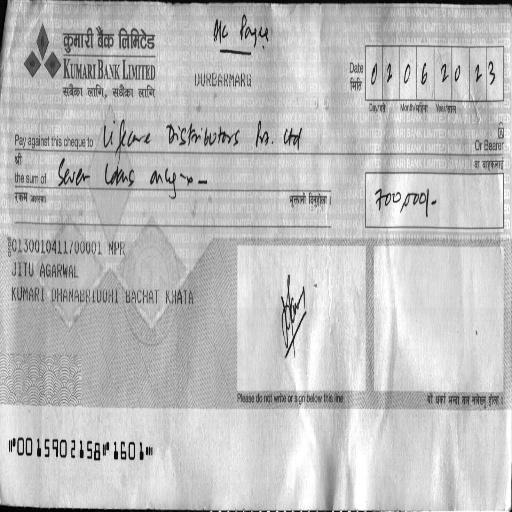 A/c Payee
कुमारी बैंक लिमिटेड
KUMARI BANK LIMITED
सबैका लागि, सधैंका लागि
DURBARMARG
Date
मिति
0 2 0 6 2 0 2 3
Day/गते Month/महिना Year/साल
Pay against this cheque to Lifecare Distributors Pvt. Ltd
Or Bearer
श्री
वा वाहकलाई
the sum of Seven Lakhs only
रकम
भुक्तानी दिनुहोला ।
700,000/-
0130010411700001 NPR
JITU AGARWAL
KUMARI DHANABRIDDHI BACHAT KHATA
Please do not write or sign below this line
यो धर्का भन्दा तल नलेख्नु होला ।
⑈0015902158⑈ 1601⑈